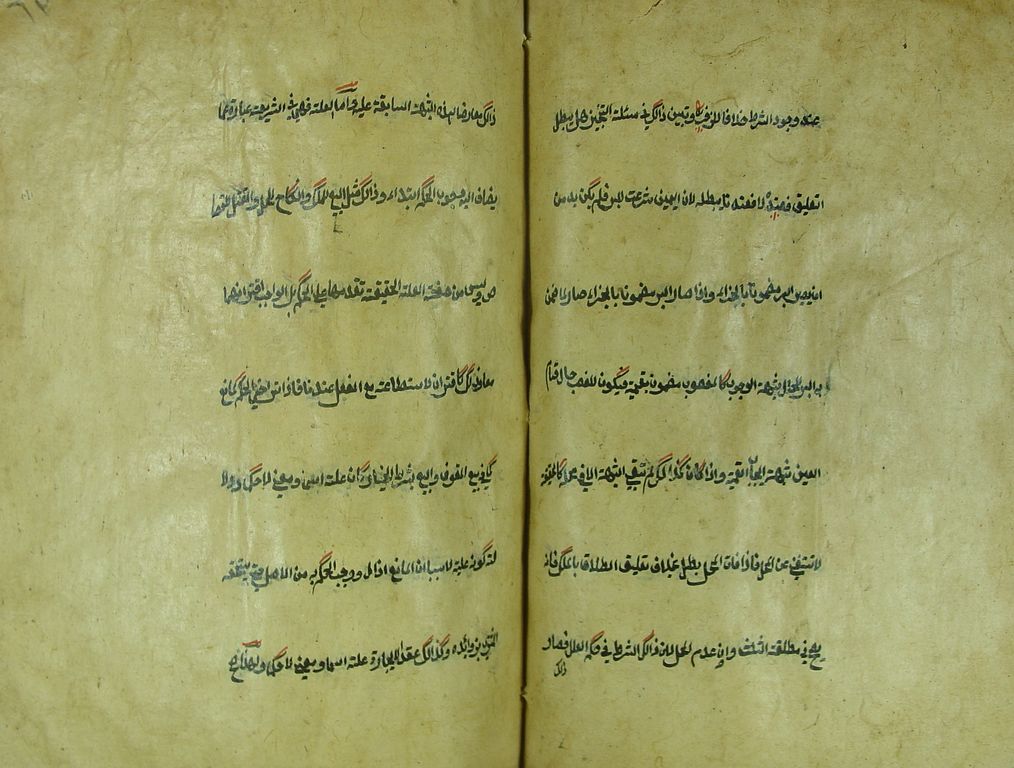 عنه وجود الشرط خلافا لزفر وتبين ذالك في مسئلة التنجيز هل يبطل
التعليق فعنده لا فعندنا يبطله لان اليمين شرعت للبر فلم يكن بد من
ان يصير البر مضمونا بالجزاء واذا صار البر مضمونا بالجزاء صار لما ضمن
به البر للحال شبهة الوجوب كالمغصوب مضمون بقيمة فيكون للغصب حال قيام
العين شبهة ايجاب القيمة واذا كان كذالك لم تبق الشبهة الا في محله كالحقيقة
لا تستغني عن المحل فاذا فات المحل بطل بخلاف تعليق الطلاق بالملك فانه
يصح في مطلقة الثلث وان عدم المحل لان ذالك الشرط في حكم العلل فصار
ذالك
ذالك معارضا لهذه الشبهة السابقة عليه واما العلة فهي في الشريعة عبارة عما
يضاف اليه وجوب الحكم ابتداء وذالك مثل البيع للملك والنكاح للحل والقتل للقصا
ص وليس من صفة العلة الحقيقة تقدمها على الحكم بل الواجب اقترانهما
معا وذالك كاقتران الاستطاعة مع الفعل عندنا فاذا تراخى الحكم لمانع
كما في بيع الموقوف والبيع بشرط الخيار كان علة اسما ومعنى لا حكما ودلا
لة كونه علة لا سببا ان المانع اذا زال وجب الحكم به من الاصل حتى يستحقه
المشتري بزوائده وكذالك عقد الاجارة علة اسما ومعنى لا حكما ولهذا صح